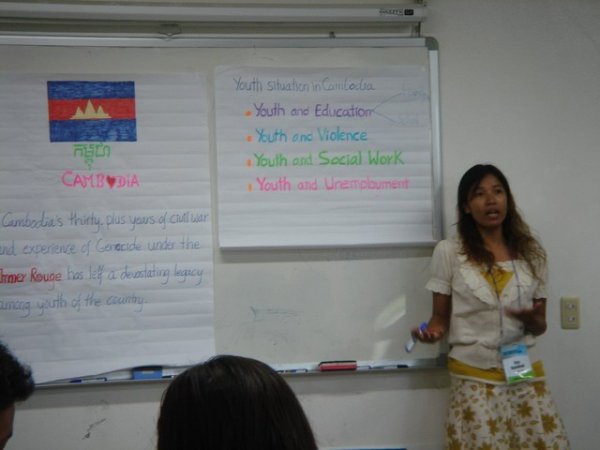 កម្ពុជា
CAMBODiA
Cambodia's thirty, plus years of civil war
and experience of Genocide under the
Khmer Rouge has left a devastating legacy
among youth of the country.
Youth situation in Cambodia
Youth and Education
Youth and Violence
Youth and Social Work
Youth and Unemployment